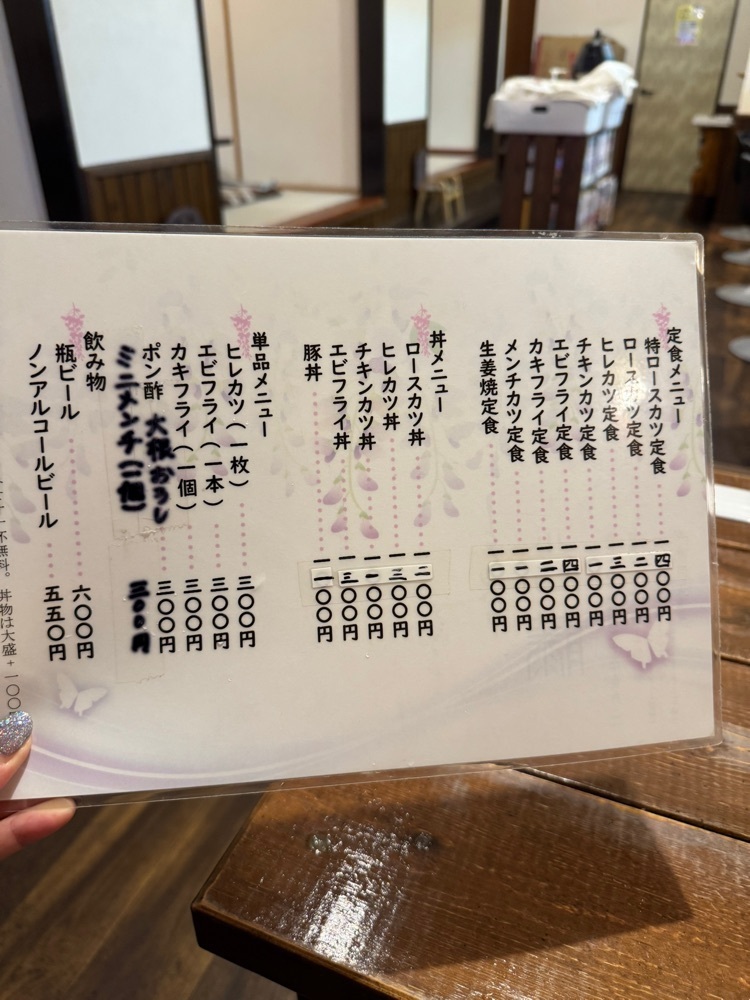 定食メニュー
特ロースカツ定食 一四〇〇円
ロースカツ定食 一二〇〇円
ヒレカツ定食 一三〇〇円
チキンカツ定食 一一〇〇円
エビフライ定食 一四〇〇円
カキフライ定食 一二〇〇円
メンチカツ定食 一一〇〇円
生姜焼定食 一一〇〇円
丼メニュー
ロースカツ丼 一二〇〇円
ヒレカツ丼 一三〇〇円
チキンカツ丼 一一〇〇円
エビフライ丼 一三〇〇円
豚丼 一一〇〇円
単品メニュー
ヒレカツ（一枚） 三〇〇円
エビフライ（一本） 三〇〇円
カキフライ（一個） 三〇〇円
ポン酢 大根おろし 三〇〇円
ミニメンチ(一個) 三〇〇円
飲み物
瓶ビール 六〇〇円
ノンアルコールビール 五五〇円
無料。 丼物は大盛＋一〇〇